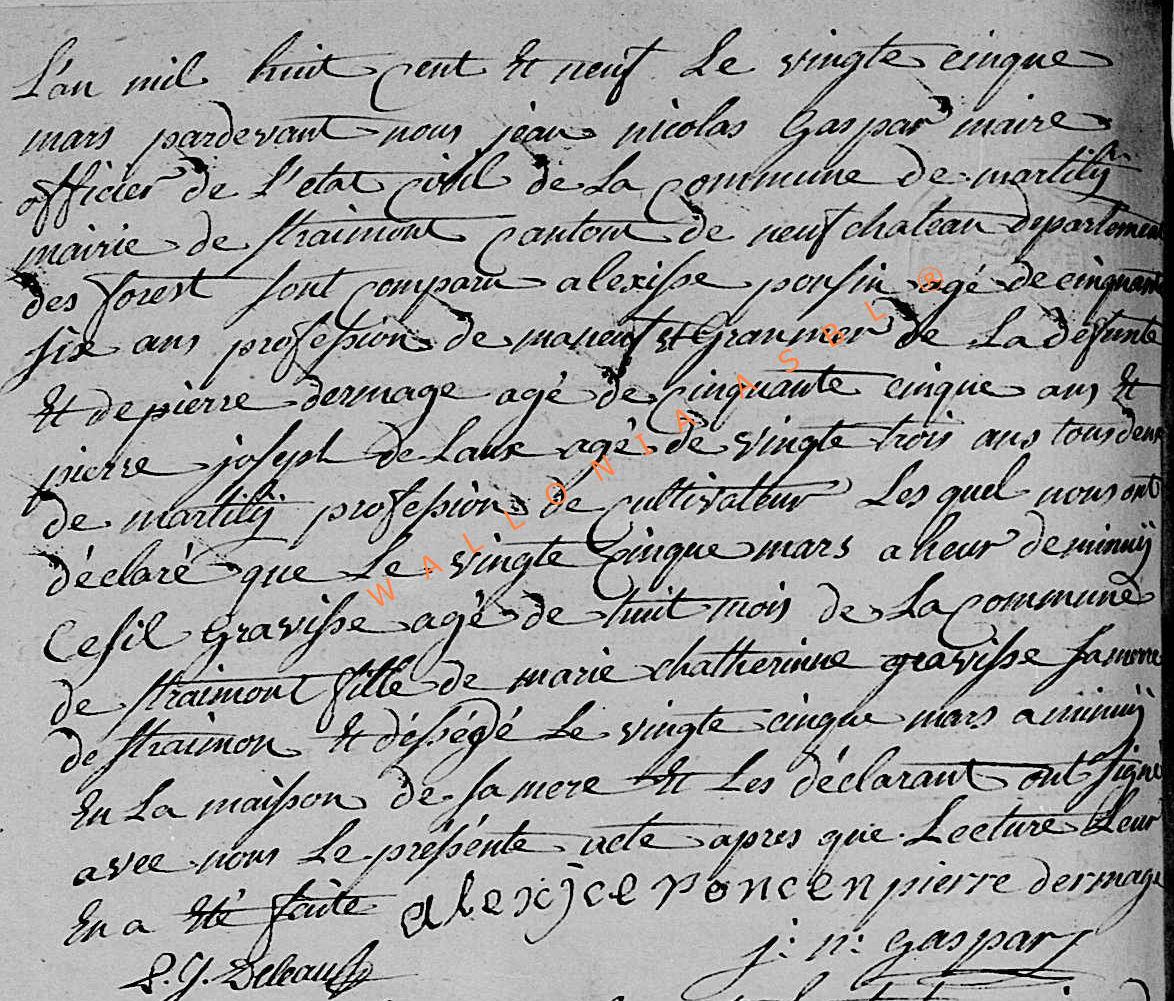 L'an mil huit cent Et neuf Le vingte cinque
mars pardevant nous jean nicolas Gaspar maire
officier de L'etat civil de La commune de martilÿ
mairie de straimont canton de neufchateau departement
des forest sont comparu alexisse ponsin agé de cinquante
six ans profession de maneuf et Granmer de La défunte
Et de pierre dermage agé de cinquante cinque ans Et
pierre joseph de Laux agé de vingte trois ans tous deux
de martilÿ profession de cultivateur Les quel nous ont
déclaré que Le vingte cinque mars a heur de minuÿ
Cesil Gravisse agé de huit mois de La commune
de straimont fille de marie chatherinne gravisse sa mere
de straimon Et désségé Le vingte cinque mars a minuÿ
En La maison de sa mere Et Les déclarant ont signé
avec nous Le présente acte apres que Lecture Leur
En a été faite alexjce poncen pierre dermage
j: n: gaspar
P. J. Deleau
WALLONIA ASBL ®